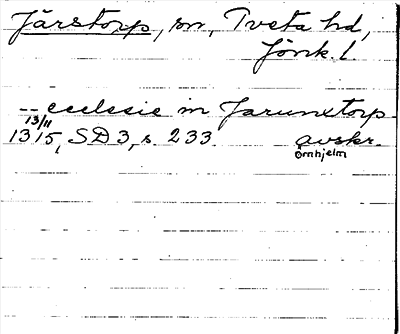 Järstorp, sn, Tveta hd,
Jönk. l.
-- ecclesie in Jarunxtorp
13/11
1315, SD 3, s. 233. avskr.
örnhjelm